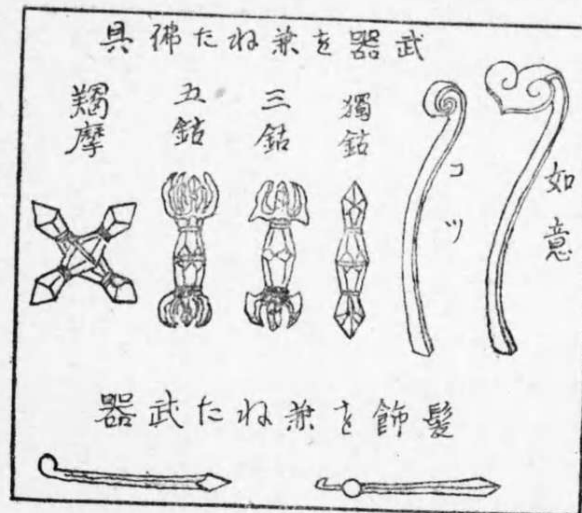 武器を兼ねた佛具
如意
コツ
獨鈷
三鈷
五鈷
羯摩
髮飾を兼ねた武器